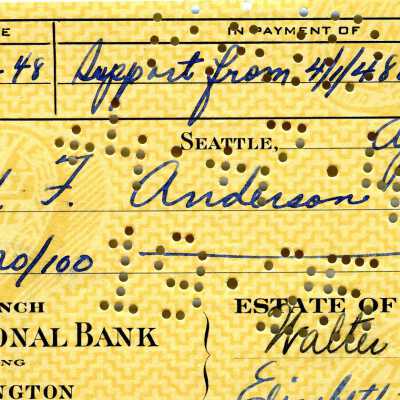 E IN PAYMENT OF
-48 Support from 4/1/48
SEATTLE,
F. Anderson
20/100
NCH ESTATE OF
IONAL BANK Walter
NG
NGTON Elizabeth